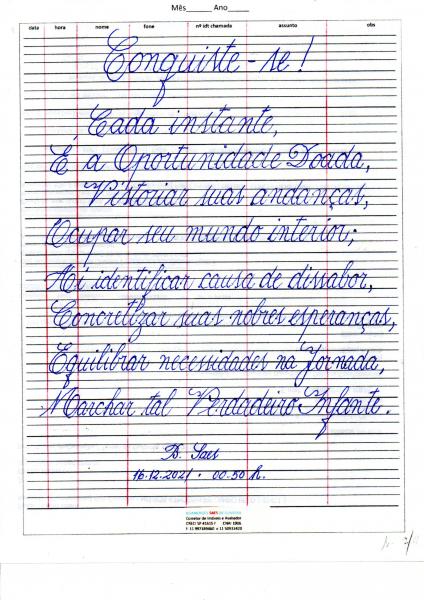 Mês_____ Ano_____
data hora nome fone nº idt chamada assunto obs
Conquiste-se!
Cada instante,
É a Oportunidade Doada,
Vistoriar suas andanças,
Ocupar seu mundo interior;
Aí identificar causa de dissabor,
Concretizar suas nobres esperanças,
Equilibrar necessidades na Jornada,
Marchar tal Verdadeiro Infante.
B. Saes
16.12.2021 - 00.50 h.
SAES
Corretor de Imóveis e Avaliador